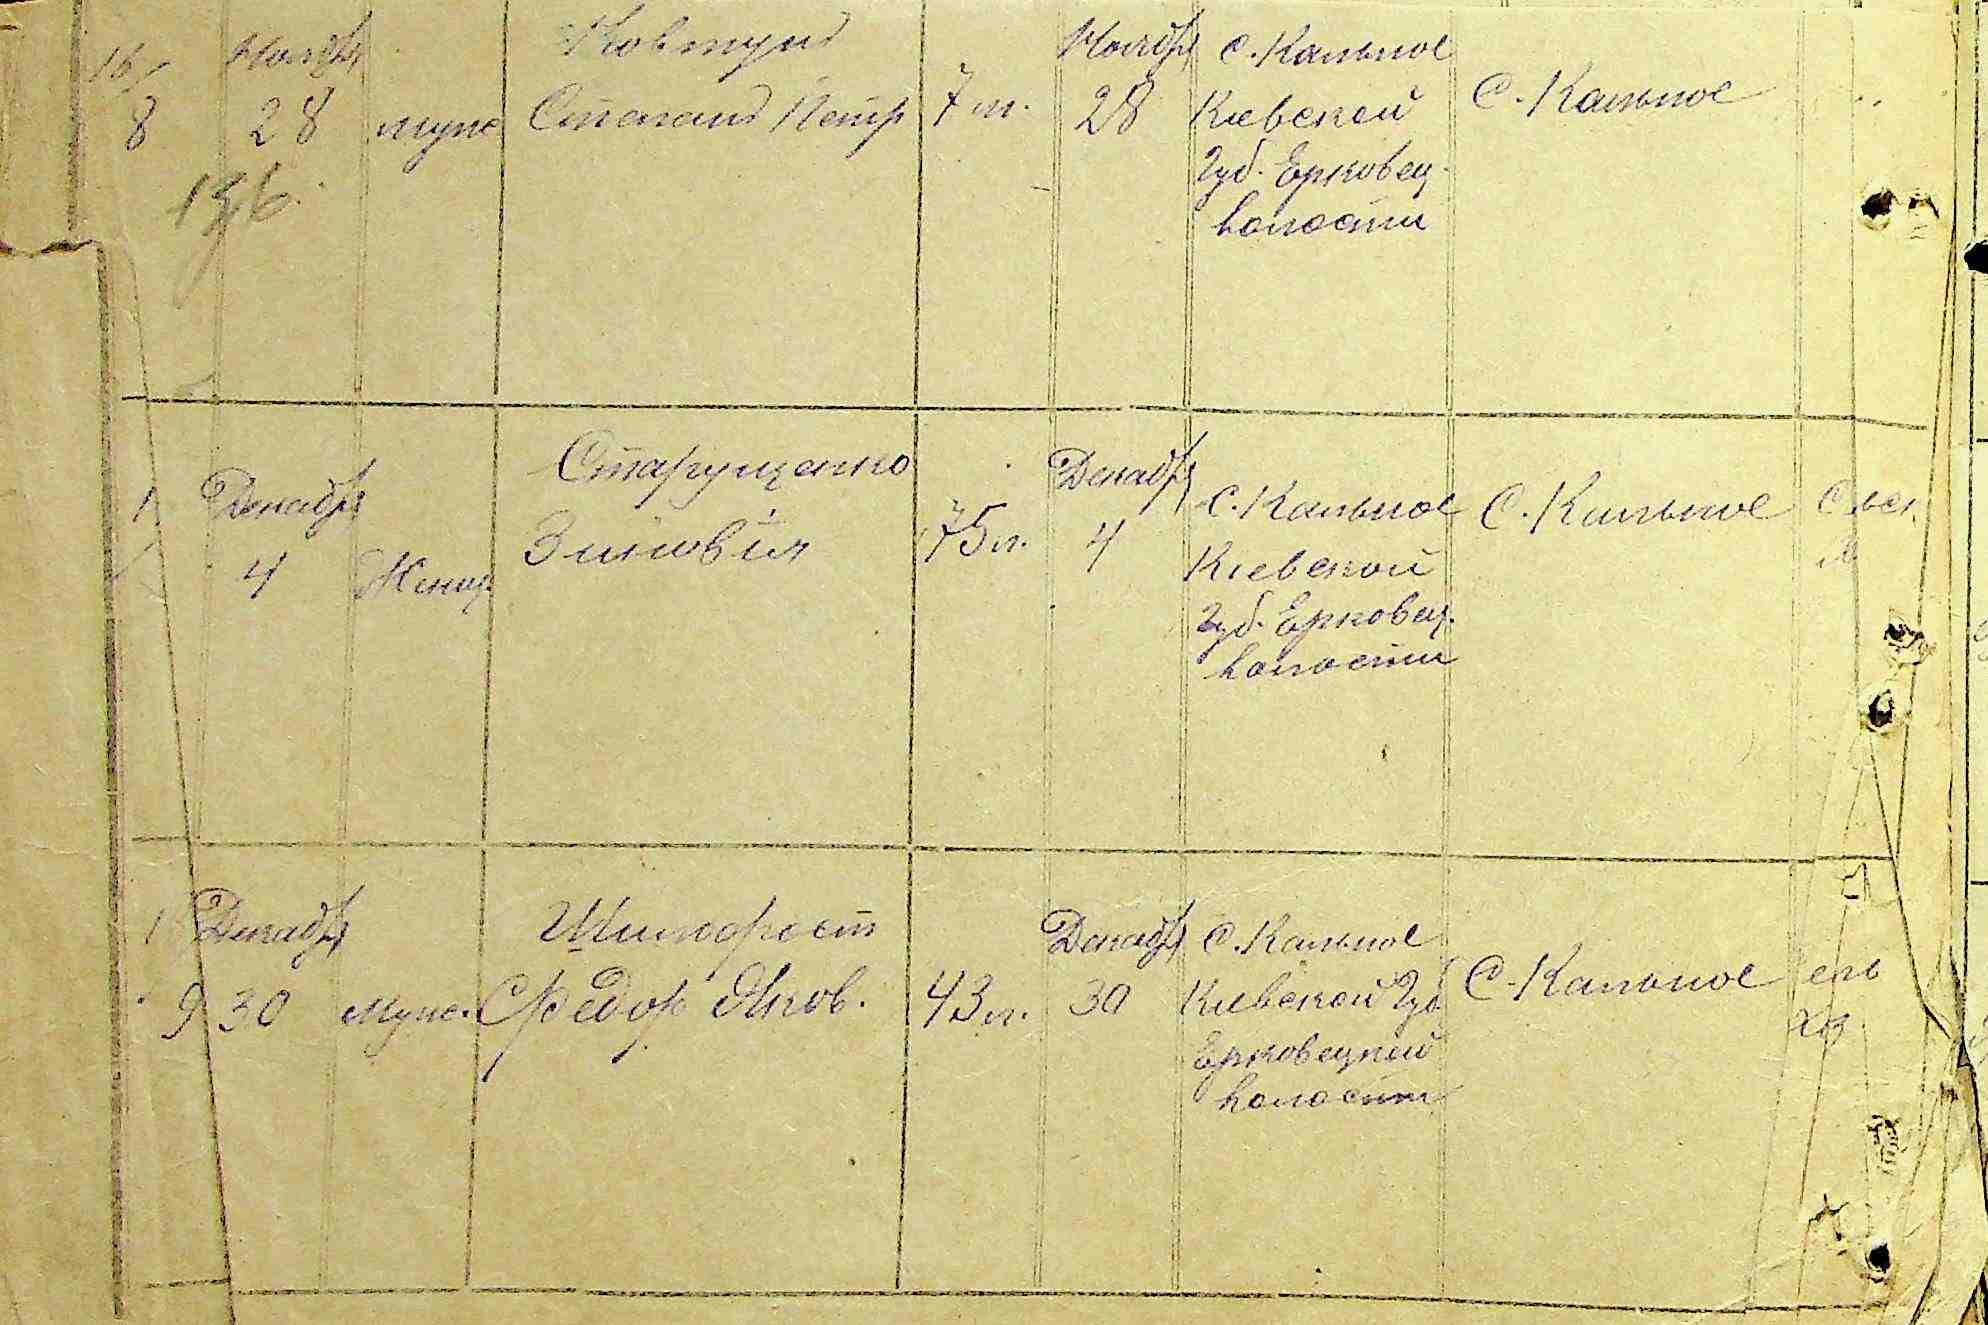 16/
8
Ноябр
28
196.
муж
Ковтун
Степан Петр
7 л.
Ноябр
28
с. Кальное
Киевской
Губ. Ерковец.
волости
С. Кальное
Декабр
4
Женщ.
Старущенко
Зиновія
75 л.
Декабр
4
с. Кальное
Киевской
Губ. Ерковец.
волости
С. Кальное
9
Декабр
30
Муж.
Федор Яков.
43 л.
Декабр
30
с. Кальное
Киевской Губ
Ерковецкой
волости
С. Кальное